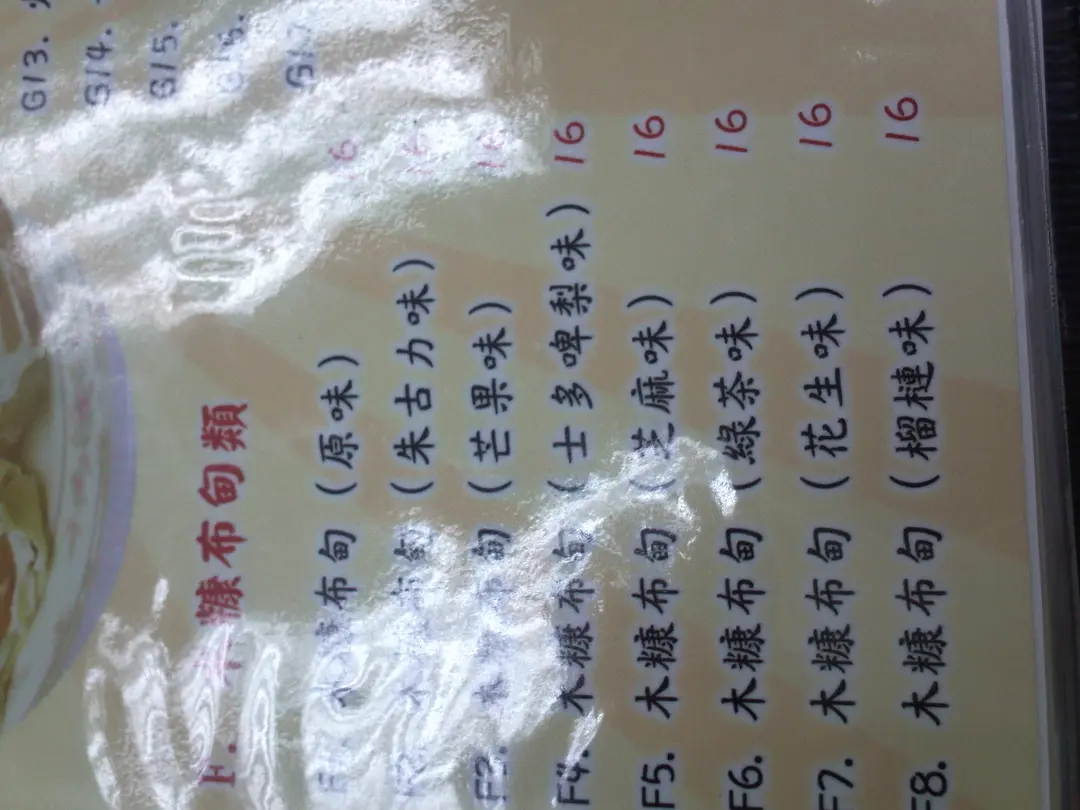 G13.
G14.
G15.
G16.
G17
F. 木糠布甸類
F1. 木糠布甸 (原味) 16
F2. 木糠布甸 (朱古力味) 16
F3. 木糠布甸 (芒果味) 16
F4. 木糠布甸 (士多啤梨味) 16
F5. 木糠布甸 (芝麻味) 16
F6. 木糠布甸 (綠茶味) 16
F7. 木糠布甸 (花生味) 16
F8. 木糠布甸 (榴槤味) 16